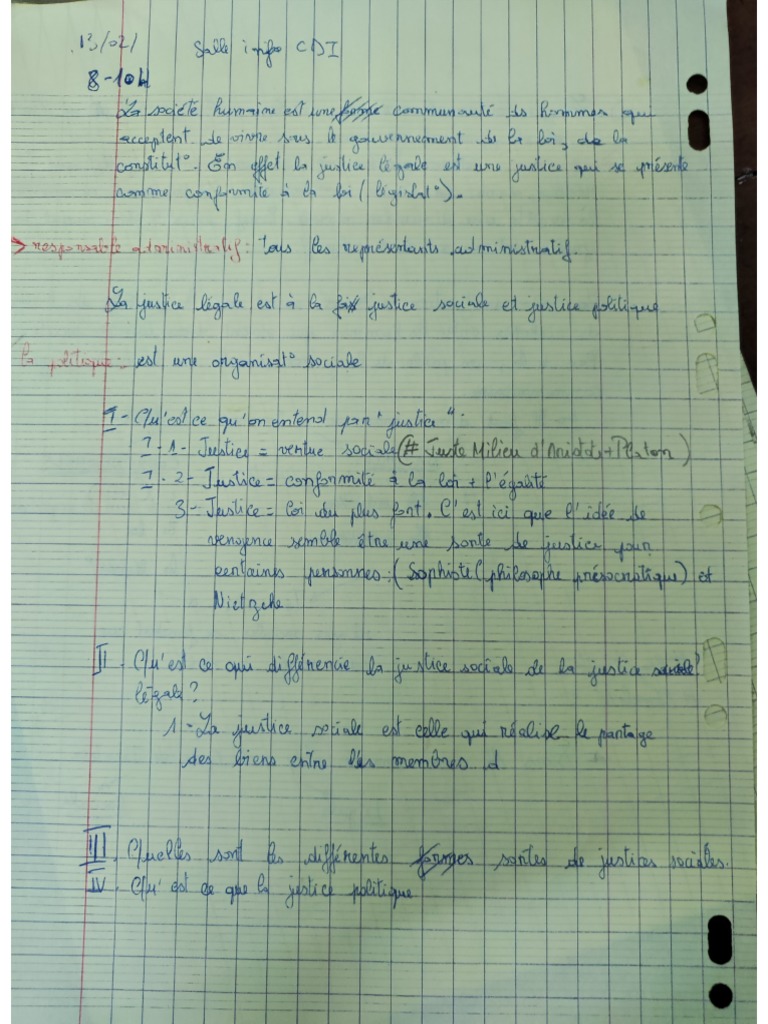 13/02/ Salle info CDI
8-10H
La société humaine est une forme communauté des hommes qui
acceptent de vivre sous le gouvernement de la loi, de la
constitut°. En effet la justice légale est une justice qui se présente
comme conformité à la loi (législat°).
→ responsable administratif: tous les représentants administratif.
La justice légale est à la fois justice sociale et justice politique
la politique: est une organisat° sociale
I- Qu'est ce qu'on entend par "justice".
I-1- Justice = vertue sociale (# Juste Milieu d'Aristote + Platon)
I-2- Justice = conformité à la loi + l'égalité
3- Justice = loi du plus fort. C'est ici que l'idée de
vengence semble être une sorte de justice pour
certaines personnes: (Sophiste (philosophe présocratique) et
Nietzche
II. Qu'est ce qui différencie la justice sociale de la justice sociale?
légale?
1- La justice sociale est celle qui réalise le partage
des biens entre les membres d
III. Quelles sont les différentes formes sortes de justices sociales.
IV. Qu'est ce que la justice politique